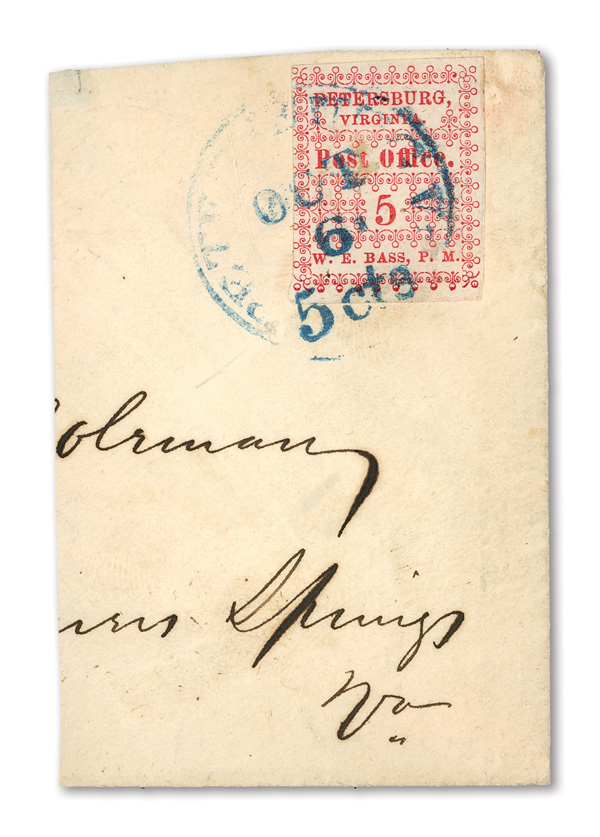 PETERSBURG,
VIRGINIA
Post Office.
5
W. E. BASS, P. M.
OCT
6
5 cts
VA
oleman
Springs
Va